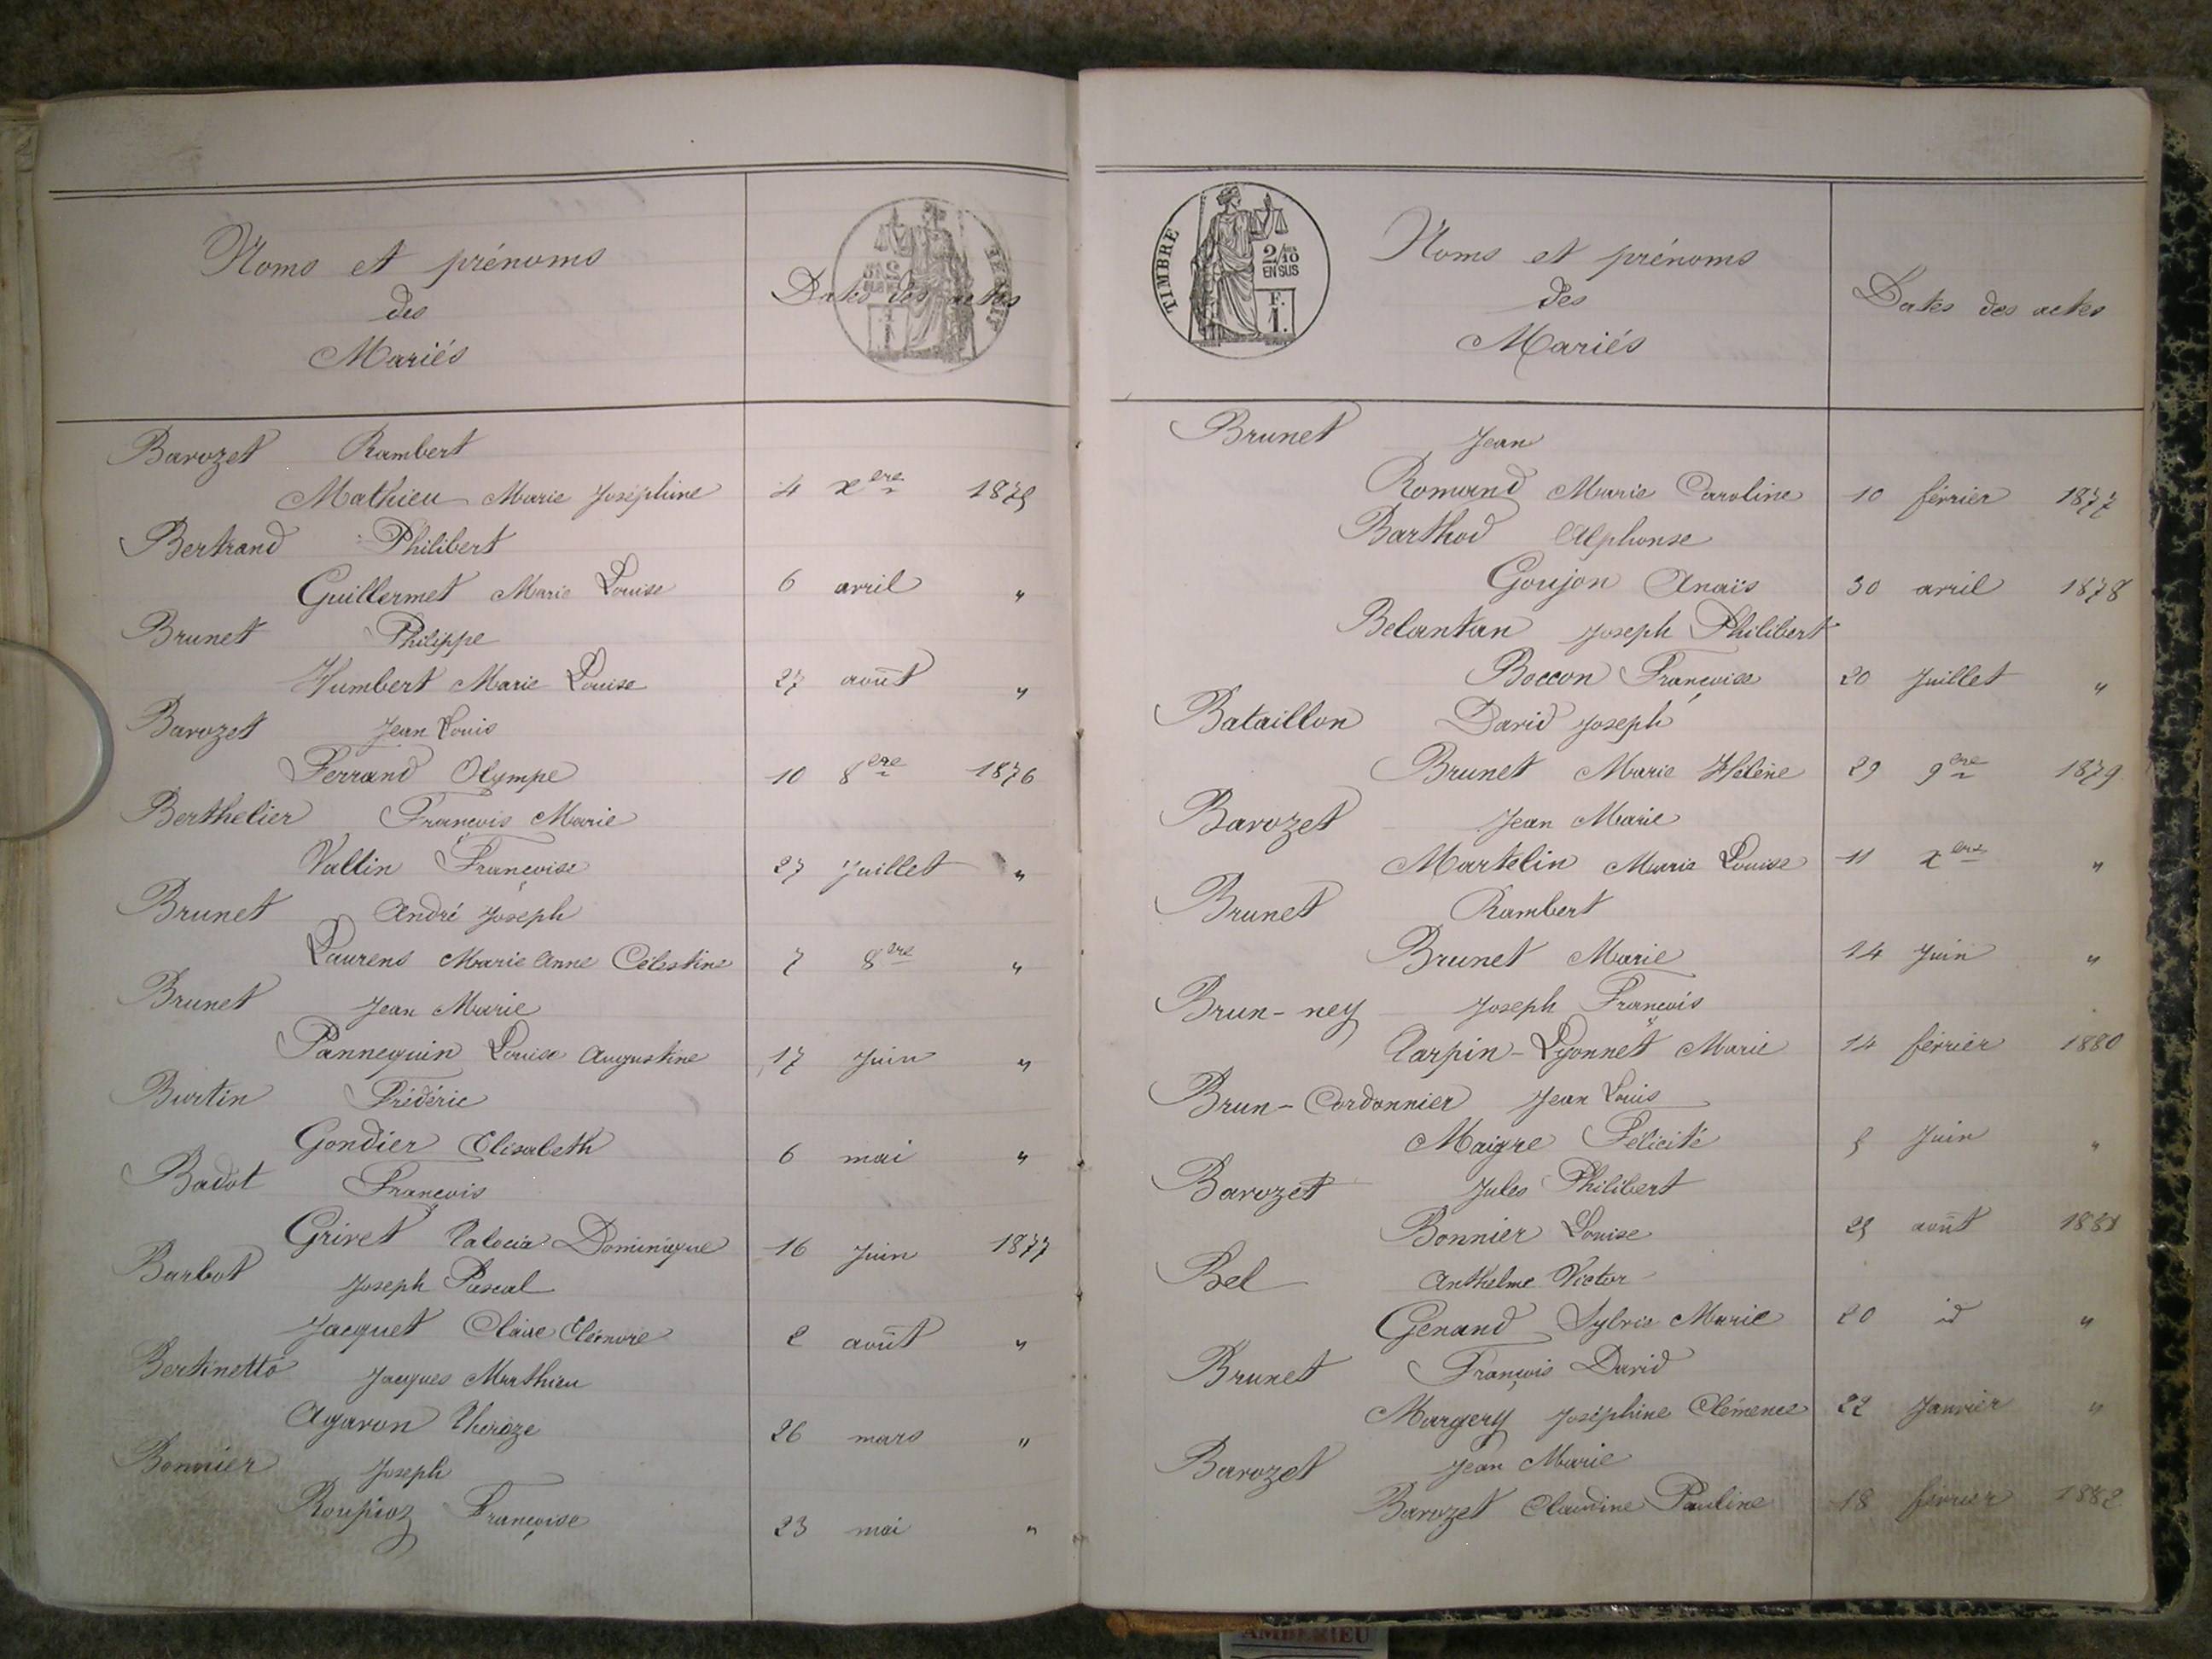 Noms et prénoms
des
Mariés
Dates des actes
Barozet Rambert
Mathieu Marie Joséphine 4 xbre 1875
Bertrand Philibert
Guillermet Marie Louise 6 avril "
Brunet Philippe
Humbert Marie Louise 27 août "
Barozet Jean Louis
Ferrand Olympe 10 8bre 1876
Berthelier François Marie
Vallin Françoise 27 Juillet "
Brunet André Joseph
Laurens Marie Anne Célestine 7 8bre "
Brunet Jean Marie
Pannequin Louise Augustine 17 Juin "
Burtin Frédéric
Gondier Elisabeth 6 mai "
Badot François
Grivet Dominique 16 Juin 1877
Barbot Joseph Pascal
Jacquet Claire Eléonore 2 août "
Bertinetto Jacques Matthieu
Agaron 26 mars "
Bonnier Joseph
Roupioz Françoise 23 mai "
TIMBRE
2/10
EN SUS
F.
1.
Noms et prénoms
des
Mariés
Dates des actes
Brunet Jean
Romand Marie Caroline 10 février 1877
Barthod Alphonse
Goujon Anaïs 30 avril 1878
Belantan Joseph Philibert
Boccon Françoise 20 Juillet "
Bataillon David Joseph
Brunet Marie Hélène 29 9bre 1879
Barozet Jean Marie
Martelin Marie Louise 11 xbre "
Brunet Rambert
Brunet Marie 14 Juin "
Brun-ney Joseph François
Carpin-Lyonnet Marie 14 février 1880
Brun-Cordonnier Jean Louis
Maigre Félicité 5 Juin "
Barozet Jules Philibert
Bonnier Louise 25 août 1881
Bel Anthelme Victor
Genand Sylvie Marie 20 id "
Brunet François David
Margery Joséphine Clémence 22 Janvier "
Barozet Jean Marie
Barozet Claudine Pauline 18 février 1882
AMBERIEU